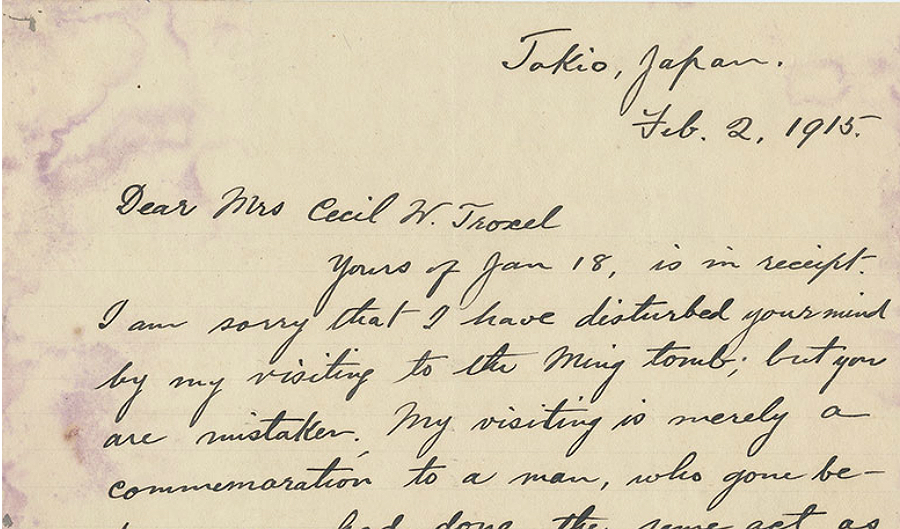 Tokio, Japan.
Feb. 2, 1915.
Dear Mrs Cecil W. Troxel
Yours of Jan 18, is in receipt.
I am sorry that I have disturbed your mind
by my visiting to the Ming tomb; but you
are mistaken. My visiting is merely a
commemoration to a man, who gone be-
had done the same act as